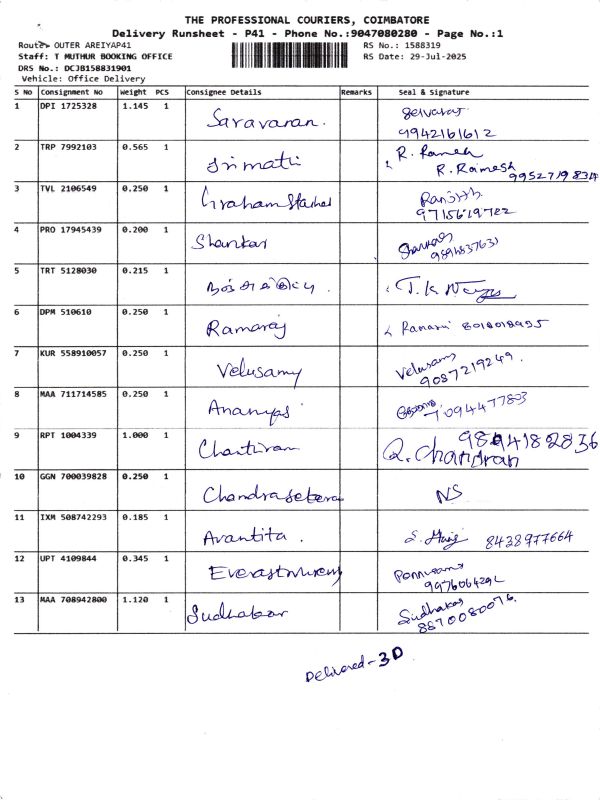 THE PROFESSIONAL COURIERS, COIMBATORE
Delivery Runsheet - P41 - Phone No.:9047080280 - Page No.:1
Route: OUTER AREIYAP41
RS No.: 1588319
Staff: T MUTHUR BOOKING OFFICE
RS Date: 29-Jul-2025
DRS No.: DCJB158831901
Vehicle: Office Delivery
S No Consignment No Weight PCS Consignee Details Remarks Seal & Signature
1 DPI 1725328 1.145 1 Saravanan. Selvaraj
9942161612
2 TRP 7992103 0.565 1 Srimathi R. Ramesh
R. Ramesh 9952719834
3 TVL 2106549 0.250 1 Graham Ranjith
9715619722
4 PRO 17945439 0.200 1 Shankar Shankar
9894837631
5 TRT 5128030 0.215 1 T.K
6 DPM 510610 0.250 1 Ramaraj 8018018955
7 KUR 558910057 0.250 1 Velusamy Velusamy
9087219249.
8 MAA 711714585 0.250 1 7094477803
9 RPT 1004339 1.000 1 9894182836
R. Chandran
10 GGN 700039828 0.250 1 Chandrasekaran NS
11 IXM 508742293 0.185 1 Avantita. 8438977664
12 UPT 4109844 0.345 1 Ponnusamy
13 MAA 708942800 1.120 1 Sudhakar Sudhakar
8870080076.
Delivered-3D